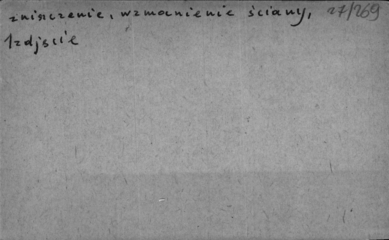 zniszczenie, wzmocnienie ściany, 27/269
1 zdjęcie